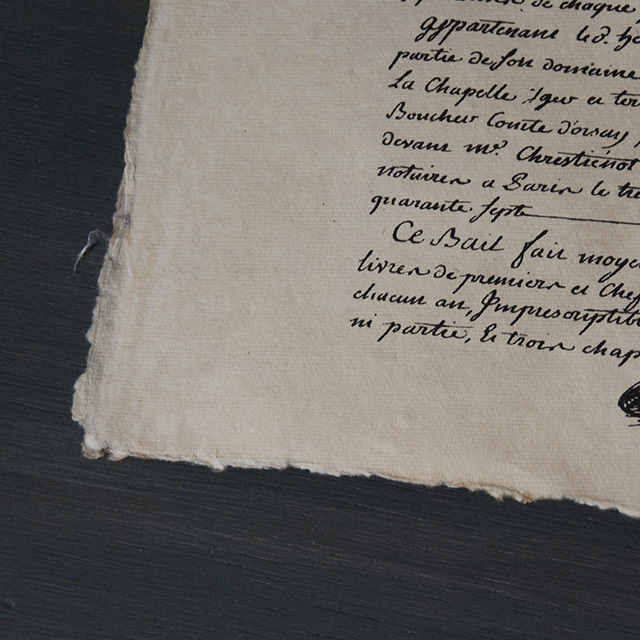 de chaque
appartenant led.
partie de son domaine
La Chapelle Iger et ter
Boucher Comte d'orsay,
devant mᵉ. Chrestiennot
notaires a Paris le tre
quarante sept
Ce Bail fait moye
livres de premiers et Chef
chacun an, Imprescriptib
ni partie, Et trois chap